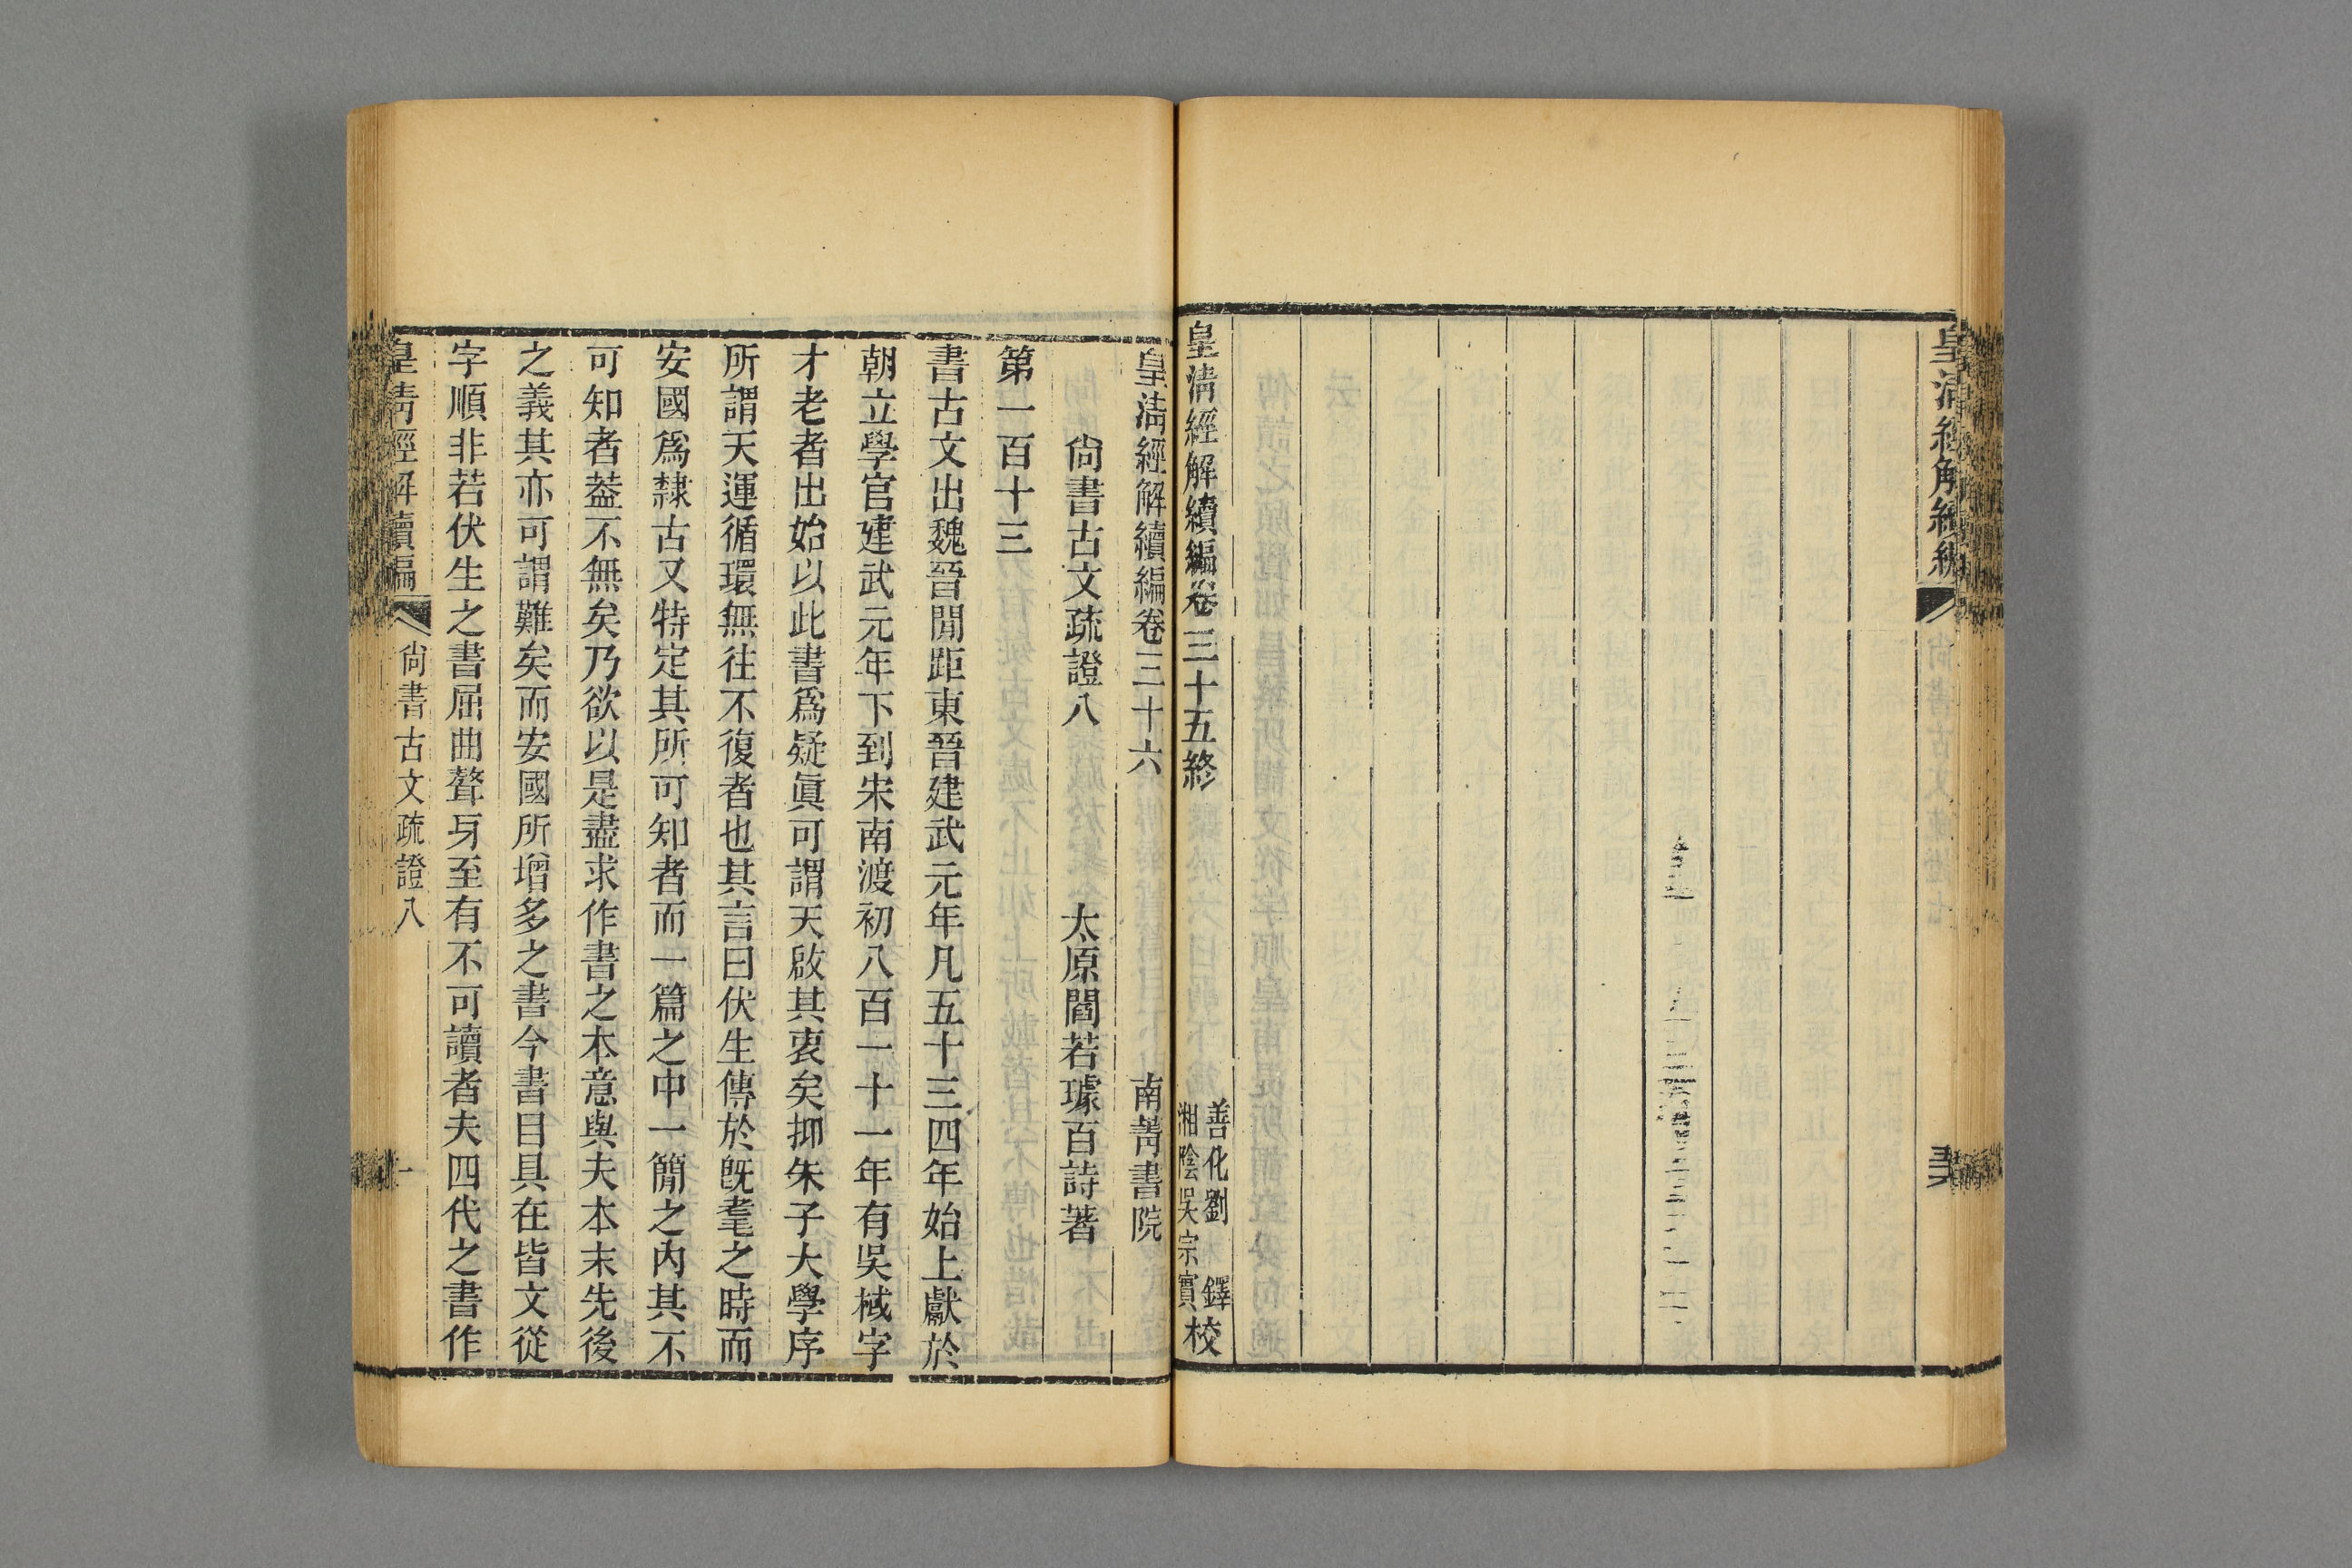 皇清經解續編
皇清經解續編卷三十五終
善化劉鐸
湘陰吳宗實
校
皇清經解續編卷三十六
南菁書院
尙書古文疏證八
太原閻若璩百詩著
第一百十三
書古文出魏晉閒距東晉建武元年凡五十三四年始上獻於
朝立學官建武元年下到宋南渡初八百一十一年有吳棫字
才老者出始以此書爲疑眞可謂天啟其衷矣抑朱子大學序
所謂天運循環無往不復者也其言曰伏生傳於旣耄之時而
安國爲隸古又特定其所可知者而一篇之中一簡之內其不
可知者葢不無矣乃欲以是盡求作書之本意與夫本末先後
之義其亦可謂難矣而安國所增多之書今書目具在皆文從
字順非若伏生之書屈曲聱牙至有不可讀者夫四代之書作
皇淸經解續編
尙書古文疏證八
一